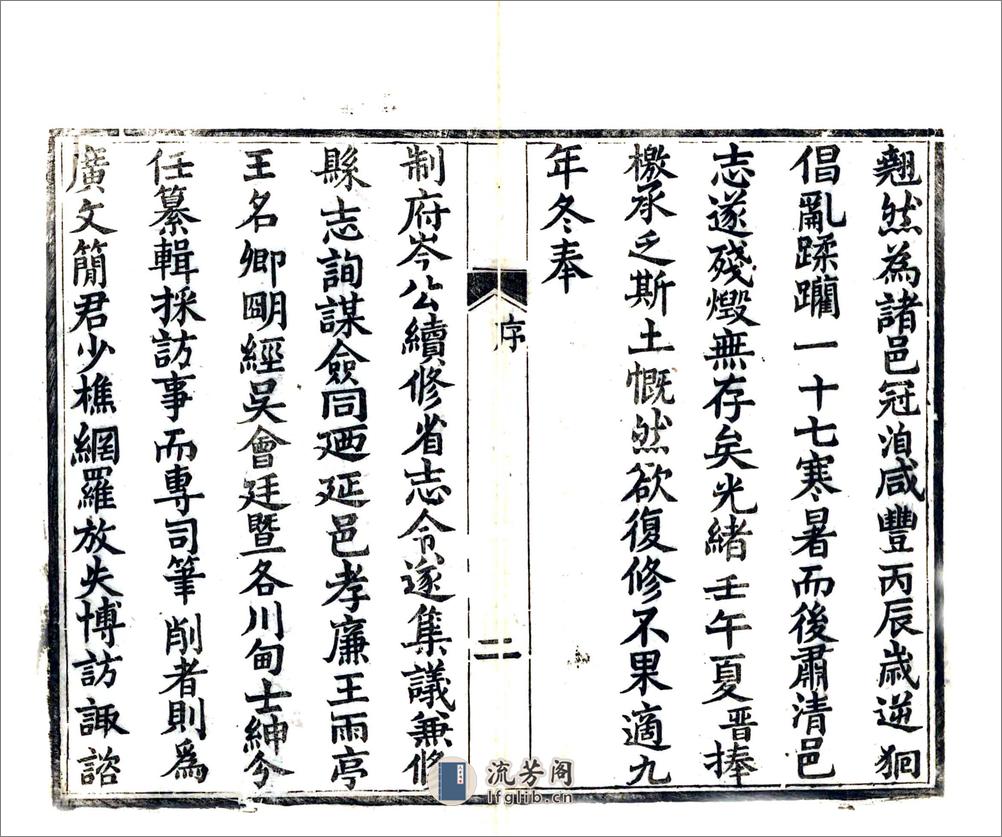 翹然為諸邑冠洎咸豐丙辰歲逆狪
倡亂蹂躪一十七寒暑而後肅清邑
志遂殘燬無存矣光緒壬午夏晋捧
檄承乏斯土慨然欲復修不果適九
年冬奉
序
二
制府岑公續修省志令遂集議兼修
縣志詢謀僉同廼延邑孝廉王雨亭
王名卿朙經吳會廷暨各川甸士紳分
任纂輯採訪事而專司筆削者則為
廣文簡君少樵網羅放失博訪諏諮
流芳阁
lfglib.cn